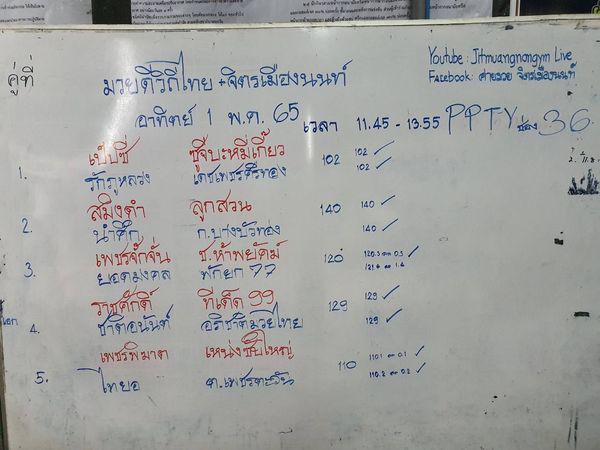 Youtube : Jitmuangnongym Live
Facebook : ค่ายมวย จิตรเมืองนนท์
คู่ที่
มวยดีวิถีไทย + จิตรเมืองนนท์
อาทิตย์ 1 พ.ค. 65 เวลา 11.45 - 13.55 PPTV ช่อง 36
เป๊ปซี่ ซูจีบะหมี่เกี๊ยว 102 102 ✓
1. รักภูหลวง เดชเพชรศรีทอง 102 ✓
สมิงดำ ลูกสวน 140 140 ✓
2. นำศึก ก.บางบัวทอง 140 ✓
เพชรจ๊ักจั่น ช.ห้าพยัคฆ์ 120 120.3 ลด 0.3 ✓
3. ยอดมงคล พักยก 77 121.4 ลด 1.4
ราชศักดิ์ ทีเด็ด 99 129 129 ✓
4. ชาติอนันต์ อภิชาติมวยไทย 129 ✓
เพชรพิฆาต เหน่งซับใหญ่ 110 110.1 ลด 0.1 ✓
5. ไทยอ ต.เพชรตะวัน 110.2 ลด 0.2 ✓